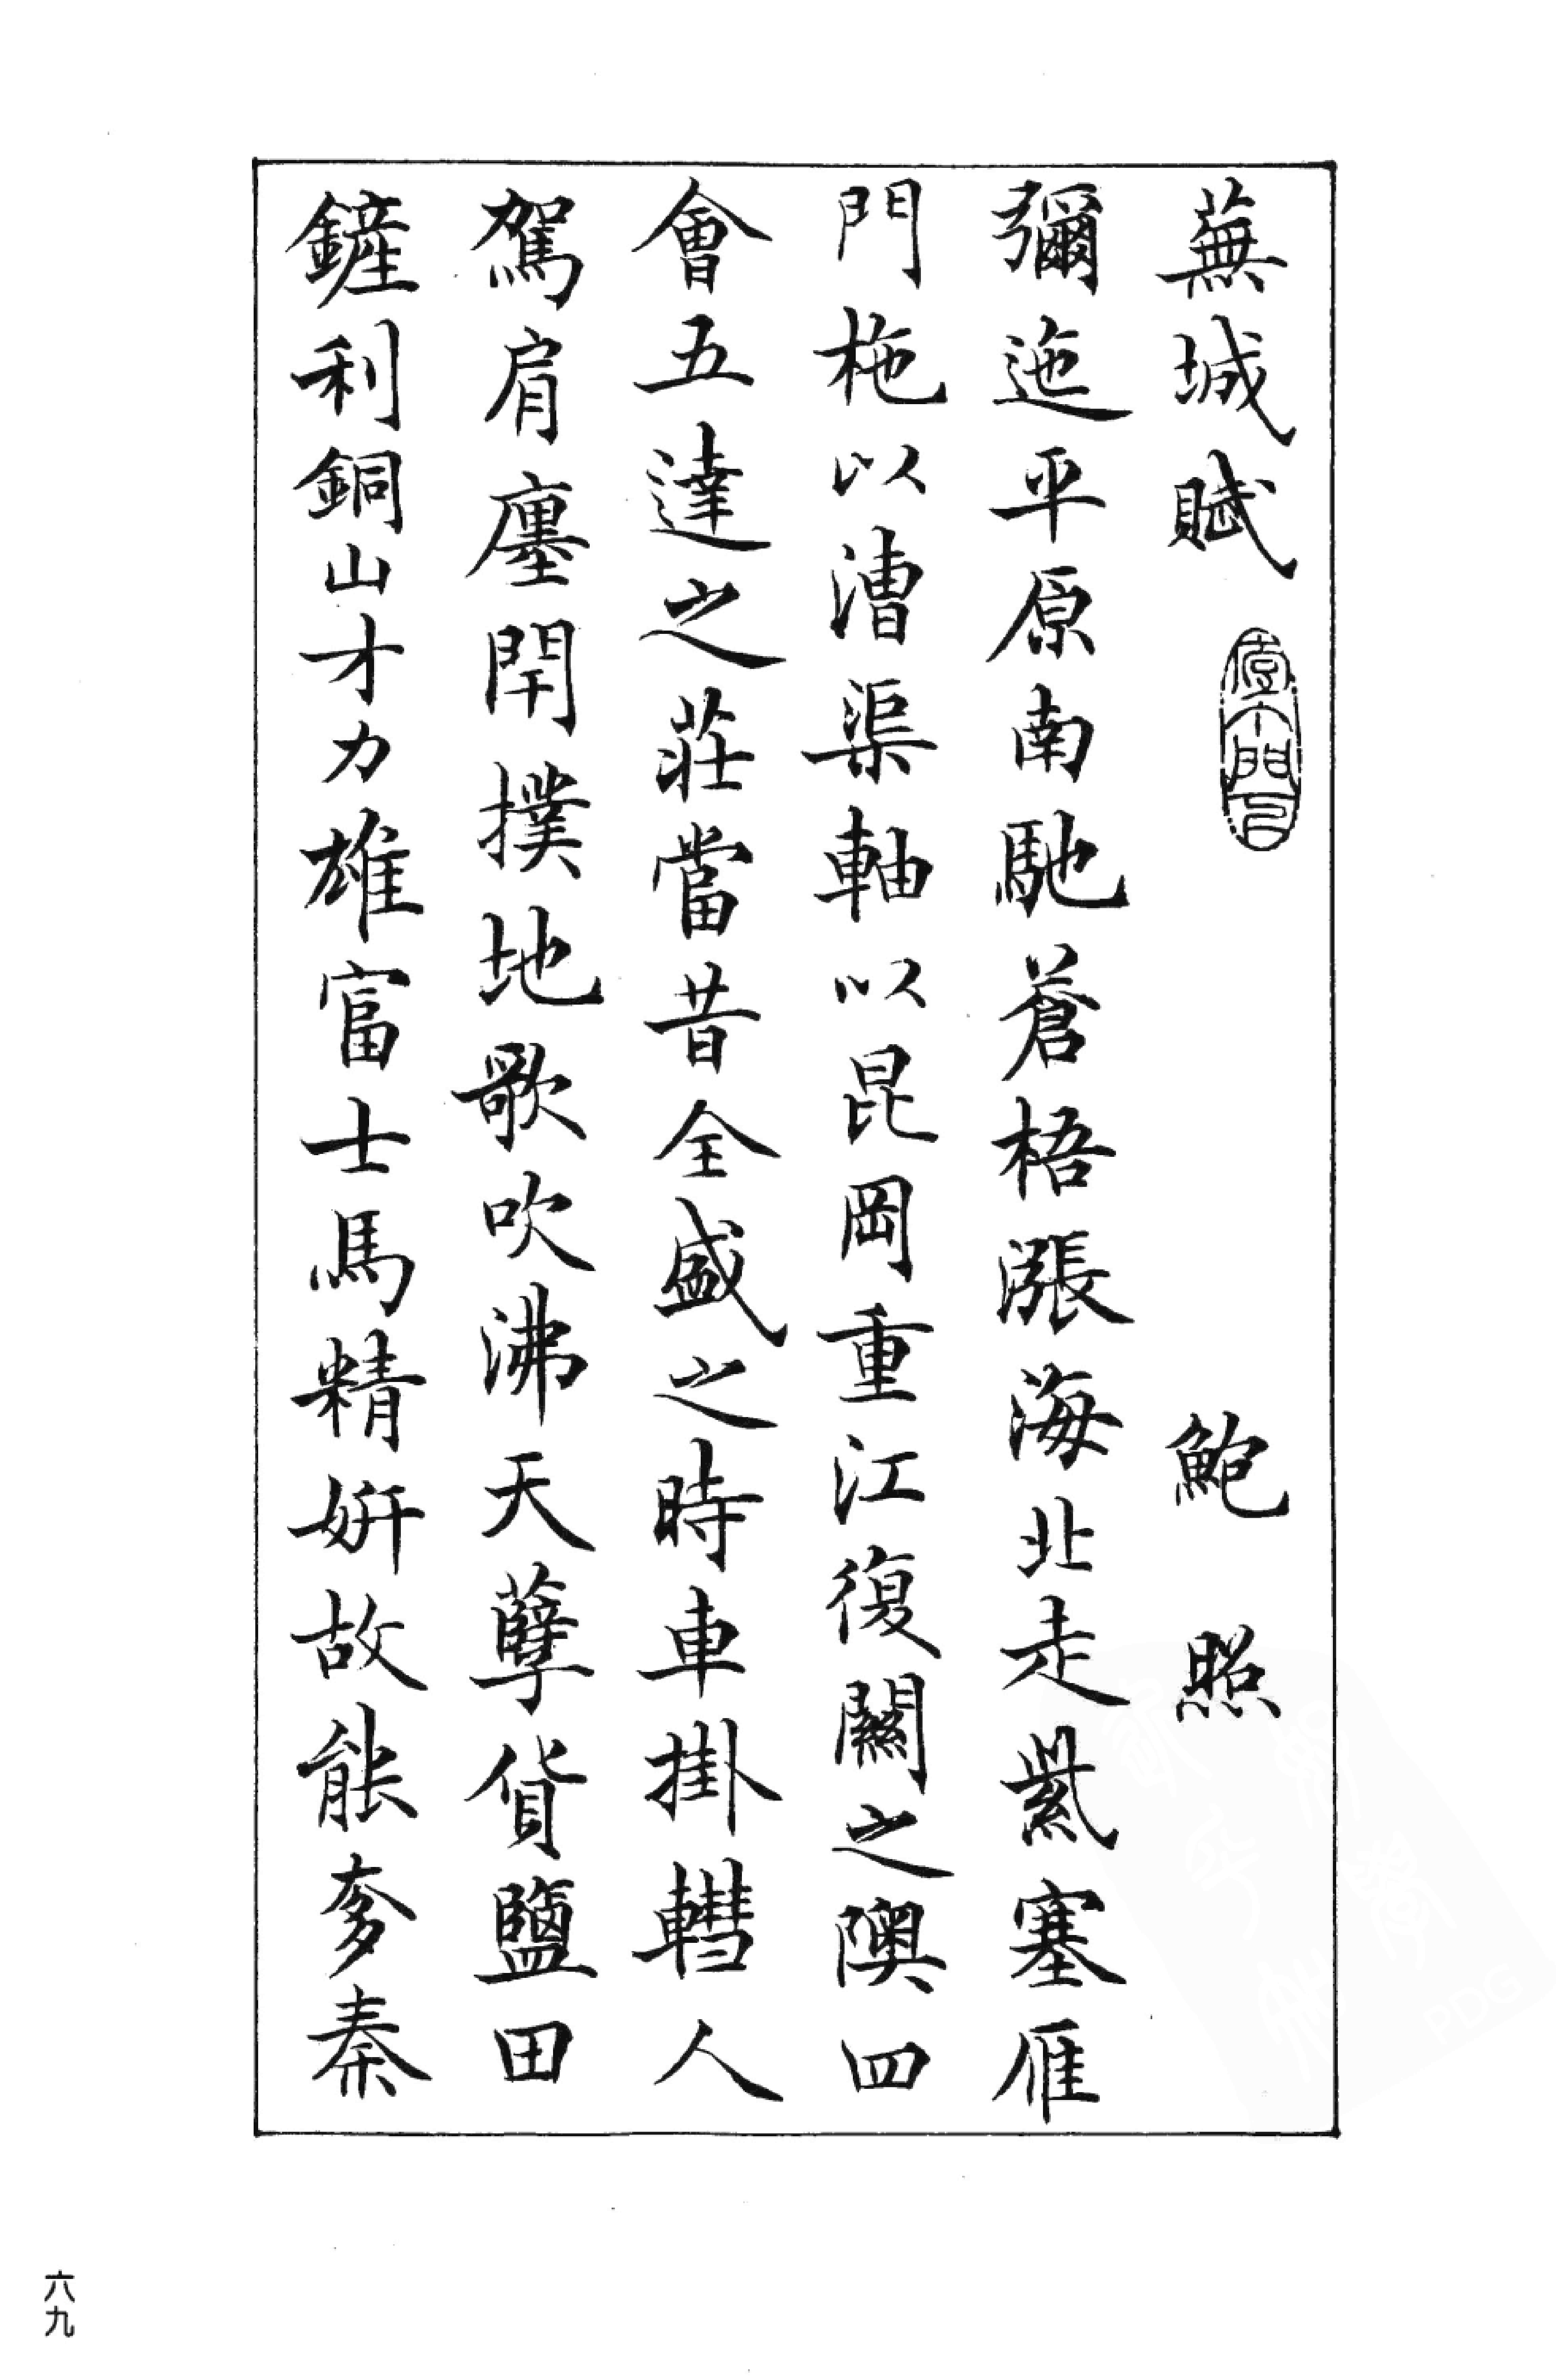 蕪城賦 鮑照
彌迤平原南馳蒼梧漲海北走紫塞雁
門柂以漕渠軸以昆岡重江復關之隩四
會五達之莊當昔全盛之時車掛轊人
駕肩廛閈撲地歌吹沸天孳貨鹽田
鏟利銅山才力雄富士馬精妍故能奓秦
六九